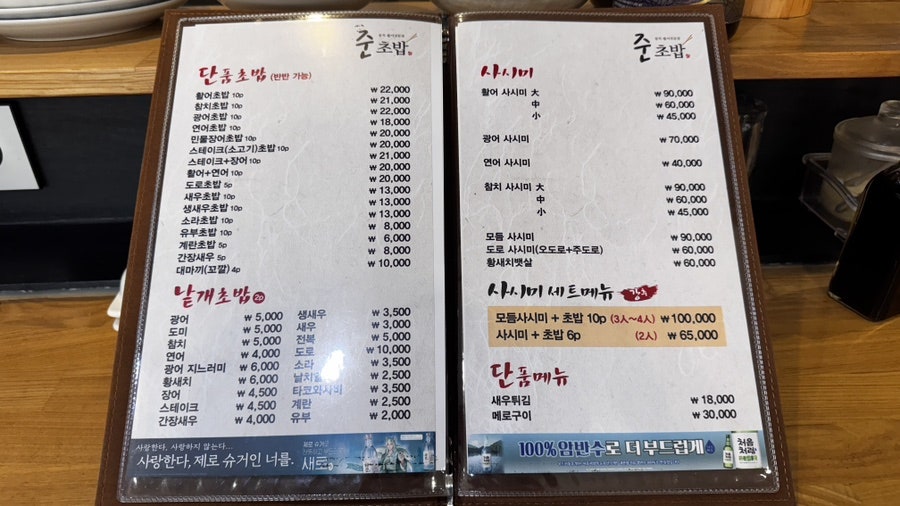 준초밥
단품초밥 (반반 가능)
활어초밥 10p ₩ 22,000
참치초밥 10p ₩ 21,000
광어초밥 10p ₩ 22,000
연어초밥 10p ₩ 18,000
민물장어초밥 10p ₩ 20,000
스테이크(소고기)초밥 10p ₩ 20,000
스테이크+장어 10p ₩ 21,000
활어+연어 10p ₩ 20,000
도로초밥 5p ₩ 20,000
새우초밥 10p ₩ 13,000
생새우초밥 10p ₩ 13,000
소라초밥 10p ₩ 13,000
유부초밥 10p ₩ 8,000
계란초밥 5p ₩ 6,000
간장새우 5p ₩ 8,000
대마끼(꼬깔) 4p ₩ 10,000
낱개초밥 2p
광어 ₩ 5,000
도미 ₩ 5,000
참치 ₩ 5,000
연어 ₩ 4,000
광어 지느러미 ₩ 6,000
황새치 ₩ 6,000
장어 ₩ 4,500
스테이크 ₩ 4,500
간장새우 ₩ 4,000
생새우 ₩ 3,500
새우 ₩ 3,000
전복 ₩ 5,000
도로 ₩ 10,000
소라 ₩ 3,500
날치알 ₩ 2,500
타코와사비 ₩ 3,500
계란 ₩ 2,500
유부 ₩ 2,000
사랑한다, 사랑하지 않는다...
사랑한다, 제로 슈거인 너를.
제로 슈거
새로
준초밥
사시미
활어 사시미 大 ₩ 90,000
中 ₩ 60,000
小 ₩ 45,000
광어 사시미 ₩ 70,000
연어 사시미 ₩ 40,000
참치 사시미 大 ₩ 90,000
中 ₩ 60,000
小 ₩ 45,000
모듬 사시미 ₩ 90,000
도로 사시미(오도로+주도로) ₩ 60,000
황새치뱃살 ₩ 60,000
사시미 세트메뉴 강추
모듬사시미 + 초밥 10p (3人~4人) ₩ 100,000
사시미 + 초밥 6p (2人) ₩ 65,000
단품메뉴
새우튀김 ₩ 18,000
메로구이 ₩ 30,000
100% 암반수로 더 부드럽게
처음처럼